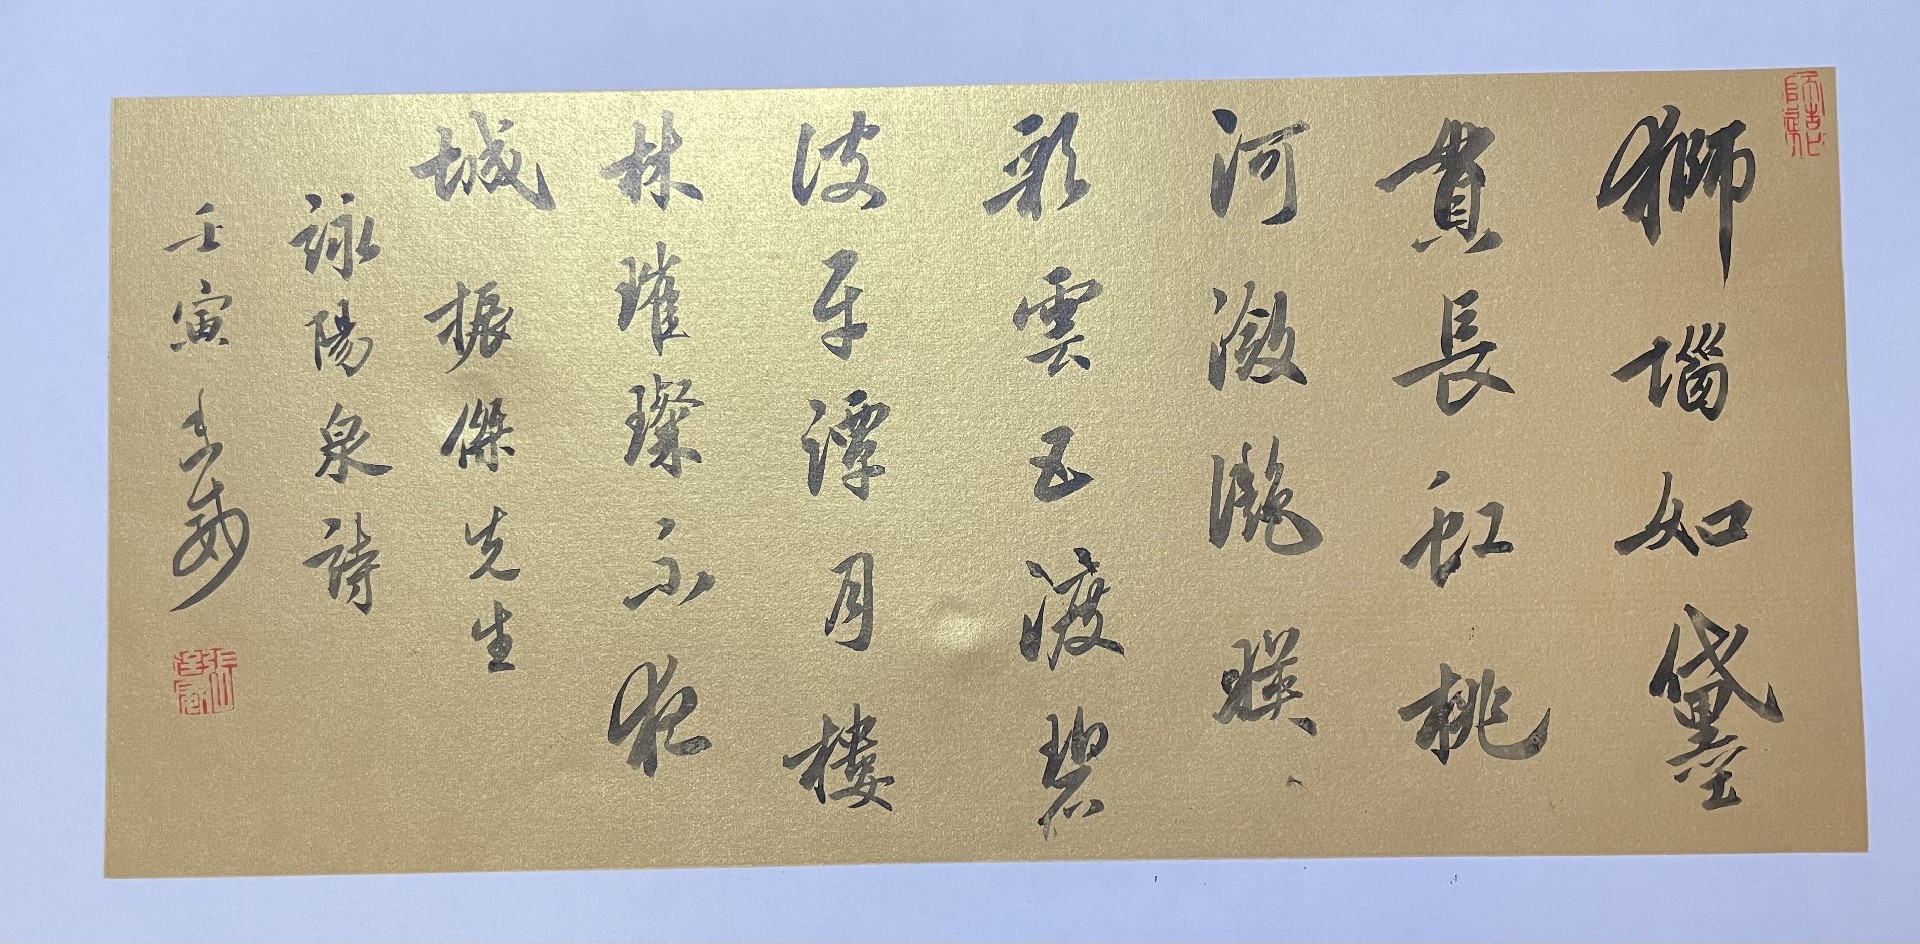 獅堖如黛
貫長虹桃
河瀲灧暎
彩雲玉渡碧
波平潭月樓
林璀璨不夜
城 振傑先生
詠陽泉詩
壬寅